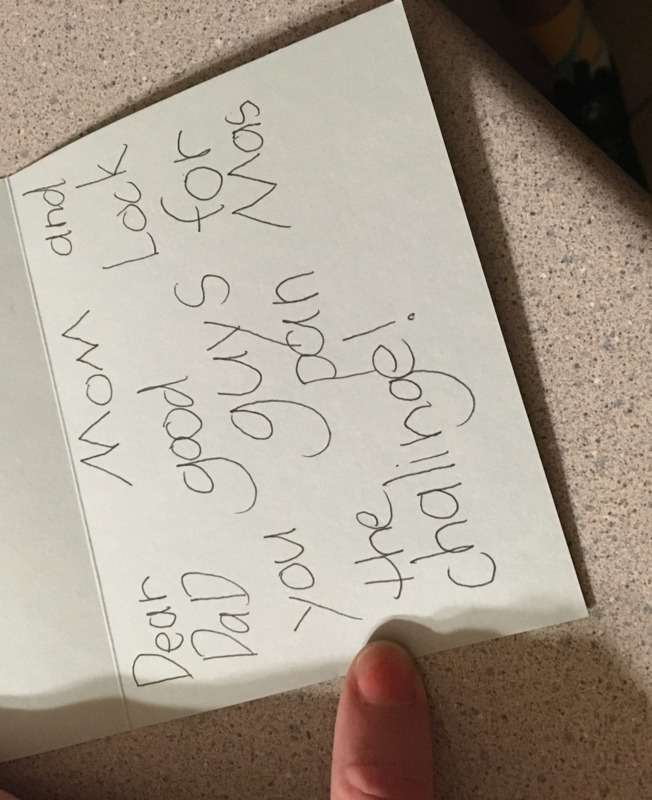 Dear Mom and
DaD good Lock
you guys for
the pan Mas
challinge!